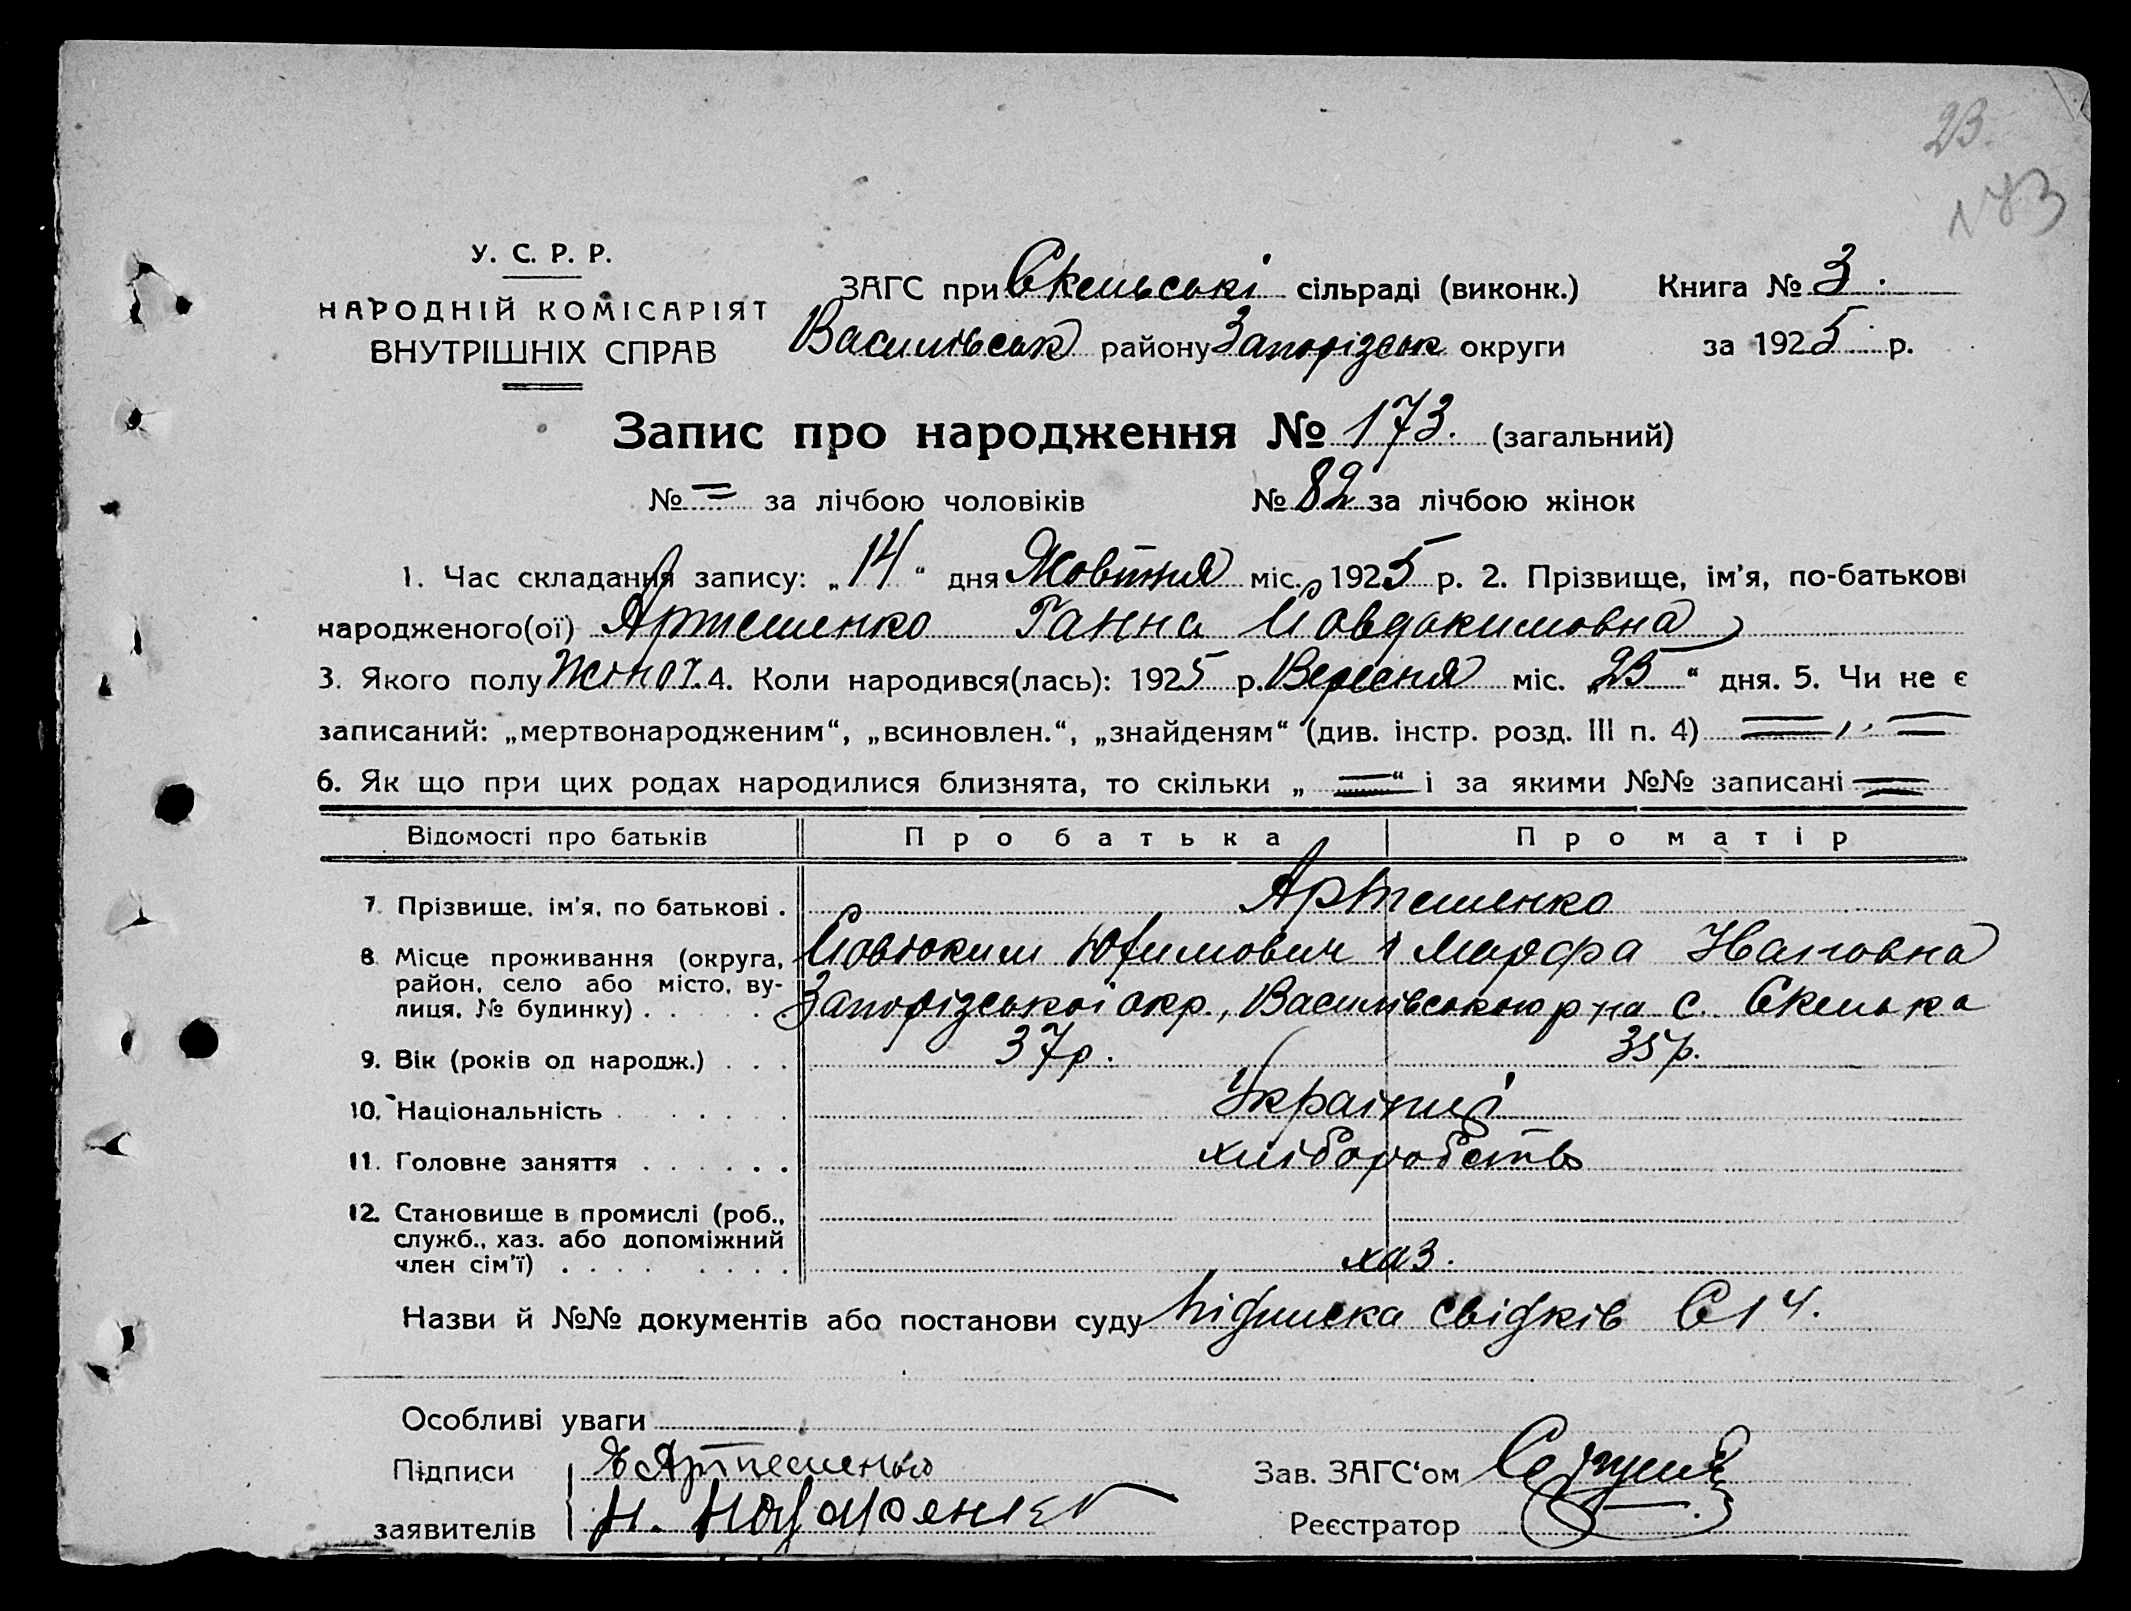 23.
N 73
У. С. Р. Р.
НАРОДНІЙ КОМІСАРІЯТ
ВНУТРІШНІХ СПРАВ
ЗАГС при Скельські сільраді (виконк.) Книга № 3.
Василівськ району Запорізськ округи за 1925 р.
Запис про народження № 173. (загальний)
№ = за лічбою чоловіків № 82 за лічбою жінок
1. Час складання запису: „14“ дня Жовтня міс. 1925 р. 2. Прізвище, ім'я, по-батькові
народженого(ої) Артеменко Ганна Йовдокимовна
3. Якого полу Жіноч. 4. Коли народився(лась): 1925 р. Вересня міс. „25“ дня. 5. Чи не є
записаний: „мертвонародженим“, „всиновлен.“, „знайденям“ (див. інстр. розд. III п. 4) = „ =
6. Як що при цих родах народилися близнята, то скільки „ = “ і за якими №№ записані =
Відомості про батьків Про батька Про матір
7. Прізвище, ім'я, по батькові . Артеменко
Йовтоким Юхимович і Марфа
8. Місце проживання (округа,
район, село або місто, ву-
лиця, № будинку) . . . . Запорізської окр., Василівського р на с. Скелька
9. Вік (років од народж.) . . . 37 р. 35 р.
10. Національність . . . . . Українці
11. Головне заняття . . . . . . хліборобств
12. Становище в промислі (роб.,
служб., хаз. або допоміжний
член сім'ї) . . . . . . . . хаз.
Назви й №№ документів або постанови суду підписка свідків
Особливі уваги
Підписи Артеменко Зав. ЗАГС'ом
заявителів Н. Реєстратор